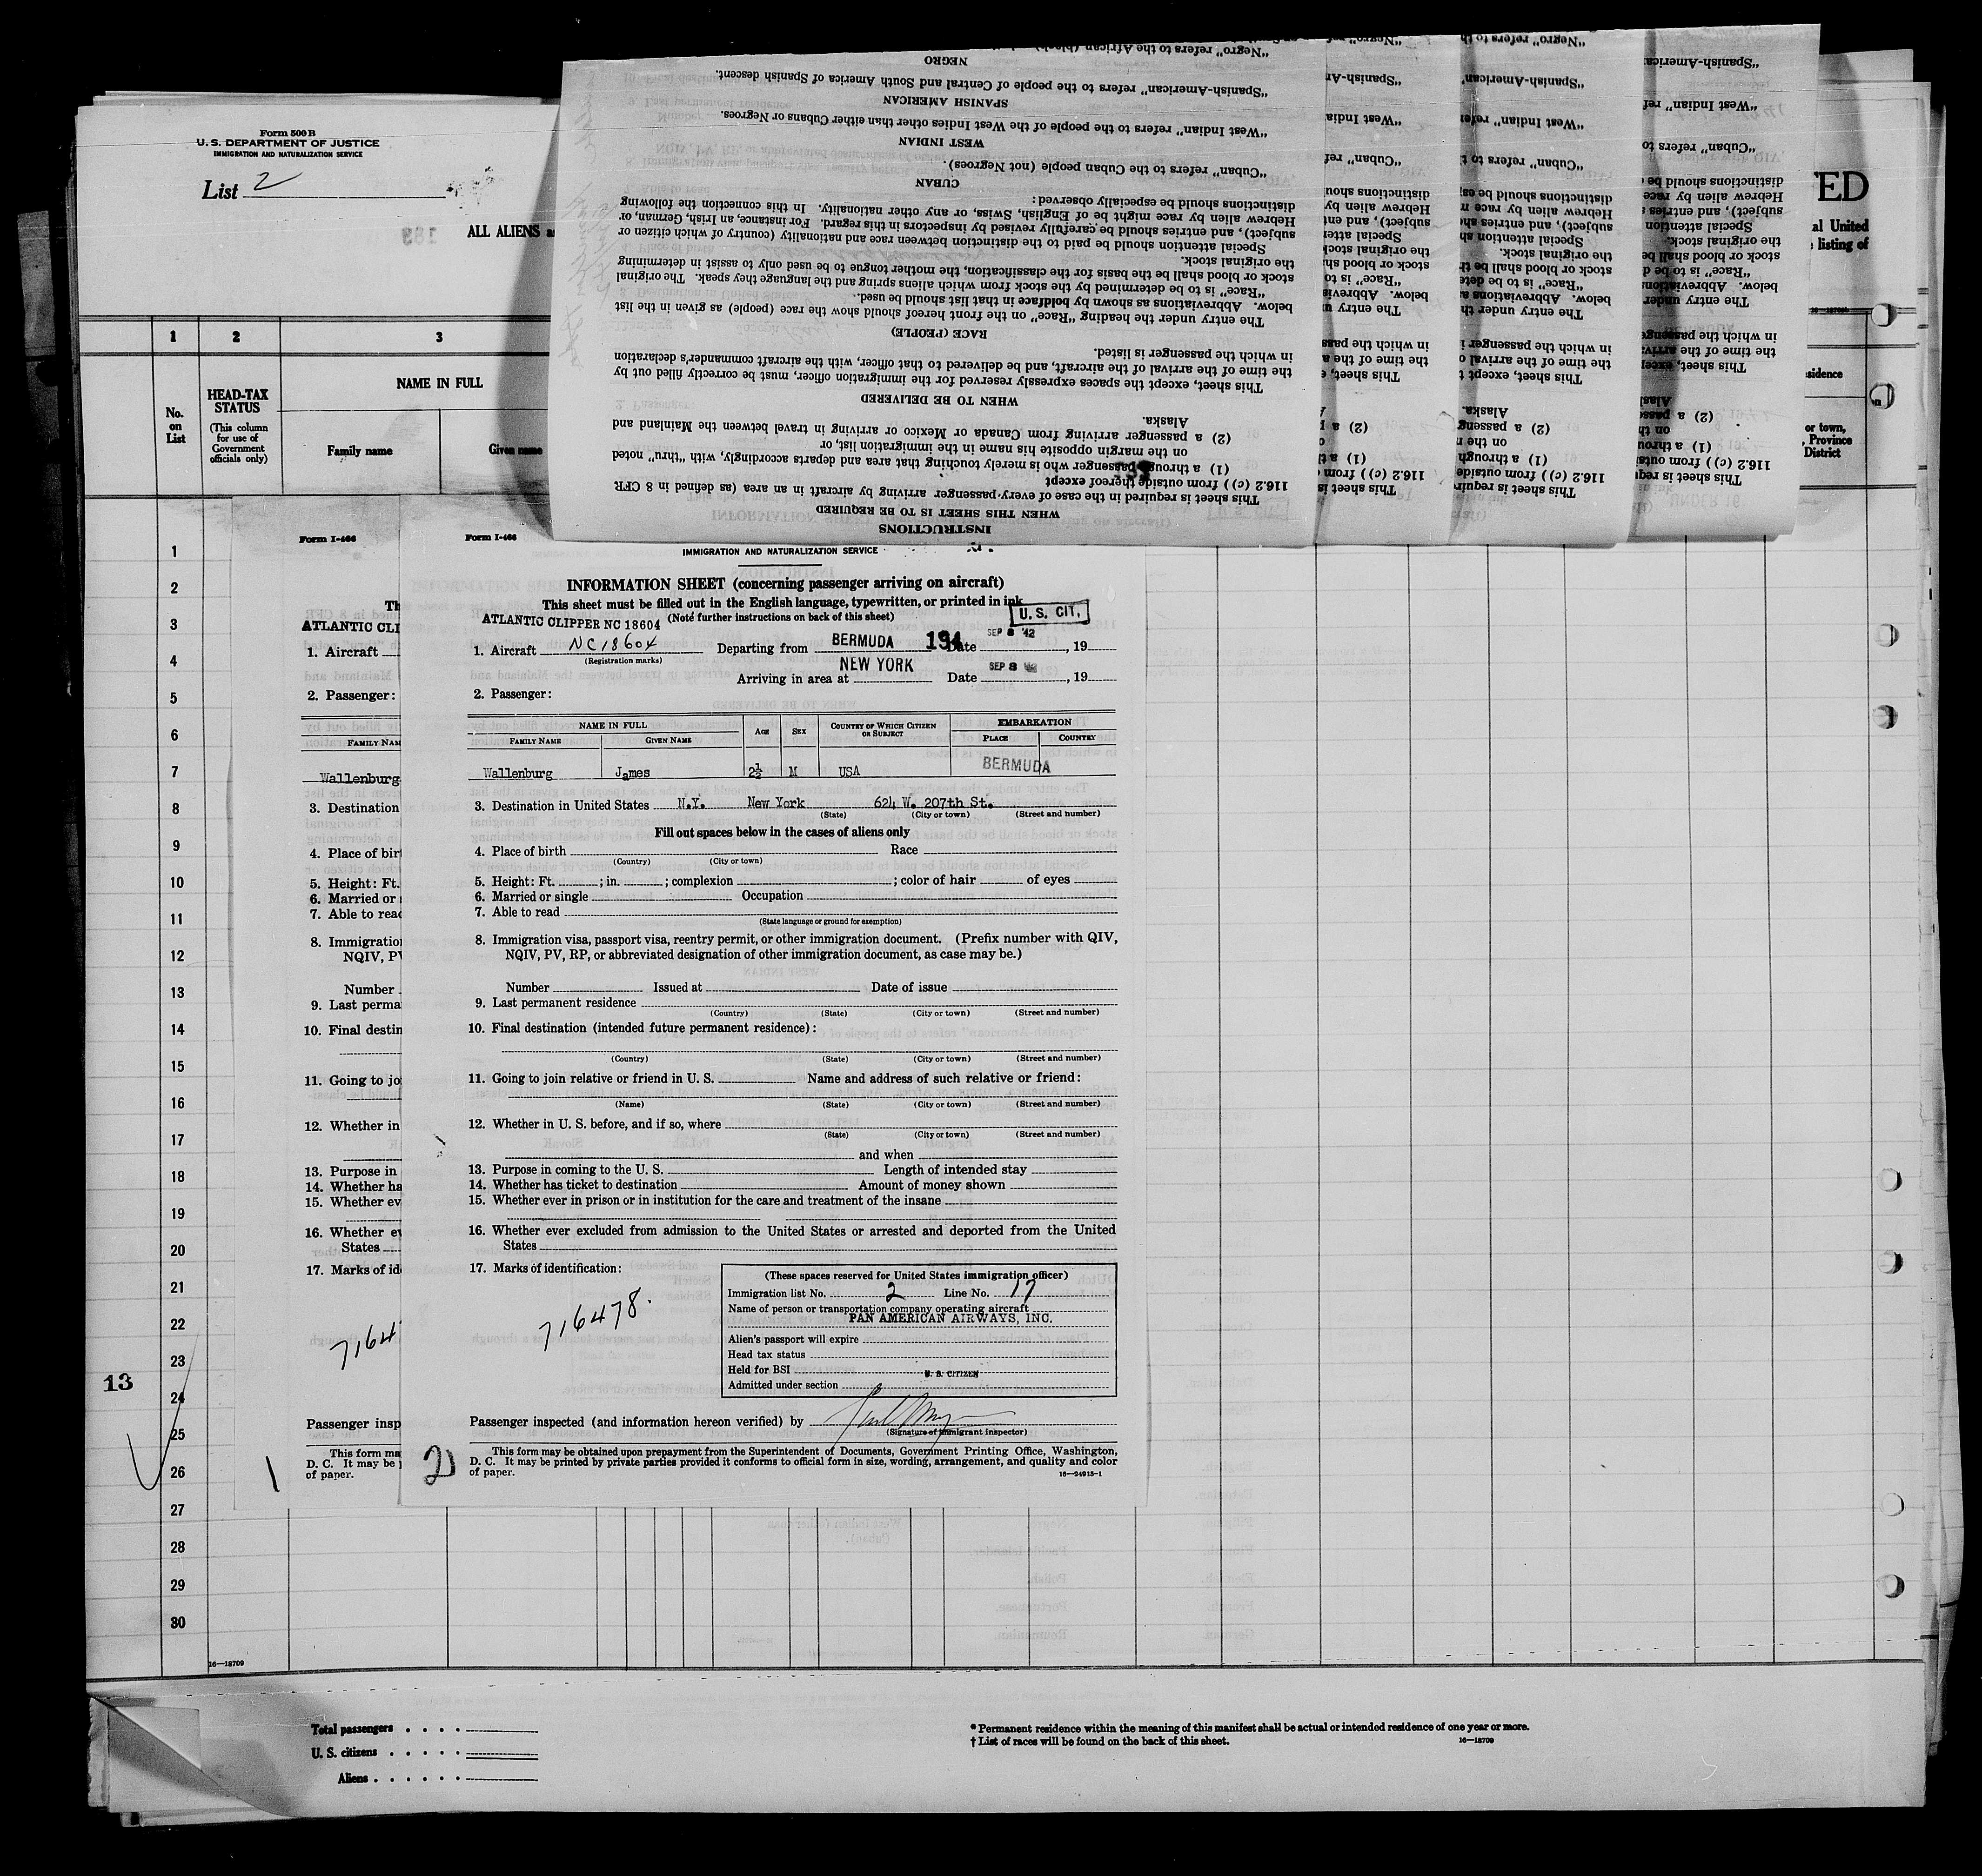 Form 500 B
U. S. DEPARTMENT OF JUSTICE
IMMIGRATION AND NATURALIZATION SERVICE
List 2
ALL ALIENS
ED
al United
listing of
1 2 3
No. on List
HEAD-TAX STATUS
(This column for use of Government officials only)
NAME IN FULL
Family name
Given name
sidence
or town,
Province
District
INSTRUCTIONS
WHEN THIS SHEET IS TO BE REQUIRED
This sheet is required in the case of every passenger arriving by aircraft in an area (as defined in 8 CFR
116.2 (c)) from outside thereof except
(1) a through passenger who is merely touching that area and departs accordingly, with "thru" noted
on the margin opposite his name in the immigration list, or
(2) a passenger arriving from Canada or Mexico or arriving in travel between the Mainland and
Alaska.
WHEN TO BE DELIVERED
This sheet, except the spaces expressly reserved for the immigration officer, must be correctly filled out by
the time of the arrival of the aircraft, and be delivered to that officer, with the aircraft commander's declaration
in which the passenger is listed.
RACE (PEOPLE)
The entry under the heading "Race" on the front hereof should show the race (people) as given in the list
below. Abbreviations as shown by boldface in that list should be used.
"Race" is to be determined by the stock from which aliens spring and the language they speak. The original
stock or blood shall be the basis for the classification, the mother tongue to be used only to assist in determining
the original stock.
Special attention should be paid to the distinction between race and nationality (country of which citizen or
subject), and entries should be carefully revised by inspectors in this regard. For instance, an Irish, German, or
Hebrew alien by race might be of English, Swiss, or any other nationality. In this connection the following
distinctions should be especially observed:
CUBAN
"Cuban" refers to the Cuban people (not Negroes).
WEST INDIAN
"West Indian" refers to the people of the West Indies other than either Cubans or Negroes.
SPANISH AMERICAN
"Spanish-American" refers to the people of Central and South America of Spanish descent.
NEGRO
"Negro" refers to the African (black)
Form I-466
ATLANTIC CLI
1. Aircraft
2. Passenger:
FAMILY NAM
Wallenburg
3. Destination
4. Place of bir
5. Height: Ft.
6. Married or
7. Able to read
8. Immigratio
NQIV, PV
Number
9. Last perma
10. Final destin
11. Going to jo
12. Whether in
13. Purpose in
14. Whether ha
15. Whether ev
16. Whether ev
States
17. Marks of id
7164
Passenger insp
This form ma
D. C. It may be
of paper.
1
Form I-466
IMMIGRATION AND NATURALIZATION SERVICE
INFORMATION SHEET (concerning passenger arriving on aircraft)
This sheet must be filled out in the English language, typewritten, or printed in ink
U. S. CIT.
ATLANTIC CLIPPER NC 18604 (Note further instructions on back of this sheet)
1. Aircraft NC18604 Departing from BERMUDA 194 Date SEP 8 '42, 19
(Registration marks)
Arriving in area at NEW YORK Date SEP 8 '42, 19
2. Passenger:
NAME IN FULL AGE SEX COUNTRY OF WHICH CITIZEN OR SUBJECT EMBARKATION
FAMILY NAME GIVEN NAME PLACE COUNTRY
Wallenburg James 2½ M USA BERMUDA
3. Destination in United States N.Y. New York 624 W. 207th St.
(State) (City or town) (Street and number)
Fill out spaces below in the cases of aliens only
4. Place of birth Race
(Country) (City or town)
5. Height: Ft. ; in. ; complexion ; color of hair of eyes
6. Married or single Occupation
7. Able to read
(State language or ground for exemption)
8. Immigration visa, passport visa, reentry permit, or other immigration document. (Prefix number with QIV,
NQIV, PV, RP, or abbreviated designation of other immigration document, as case may be.)
Number Issued at Date of issue
9. Last permanent residence
(Country) (State) (City or town) (Street and number)
10. Final destination (intended future permanent residence):
(Country) (State) (City or town) (Street and number)
11. Going to join relative or friend in U. S. Name and address of such relative or friend:
(Name) (State) (City or town) (Street and number)
12. Whether in U. S. before, and if so, where
(State) (City or town) (Street and number)
and when
13. Purpose in coming to the U. S. Length of intended stay
14. Whether has ticket to destination Amount of money shown
15. Whether ever in prison or in institution for the care and treatment of the insane
16. Whether ever excluded from admission to the United States or arrested and deported from the United
States
17. Marks of identification:
716478.
(These spaces reserved for United States immigration officer)
Immigration list No. 2 Line No. 17
Name of person or transportation company operating aircraft
PAN AMERICAN AIRWAYS, INC.
Alien's passport will expire
Head tax status
Held for BSI U. S. CITIZEN
Admitted under section
Passenger inspected (and information hereon verified) by
(Signature of Immigrant Inspector)
This form may be obtained upon prepayment from the Superintendent of Documents, Government Printing Office, Washington,
D. C. It may be printed by private parties provided it conforms to official form in size, wording, arrangement, and quality and color
of paper.
16—24915-1
2
1
2
3
4
5
6
7
8
9
10
11
12
13
14
15
16
17
18
19
20
21
22
23
24
25
26
27
28
29
30
13
16—18709
Total passengers
U. S. citizens
Aliens
* Permanent residence within the meaning of this manifest shall be actual or intended residence of one year or more.
† List of races will be found on the back of this sheet.
16—18709